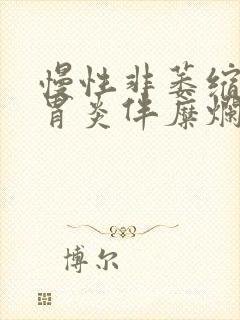 慢性非萎缩
胃炎伴糜烂
博尔